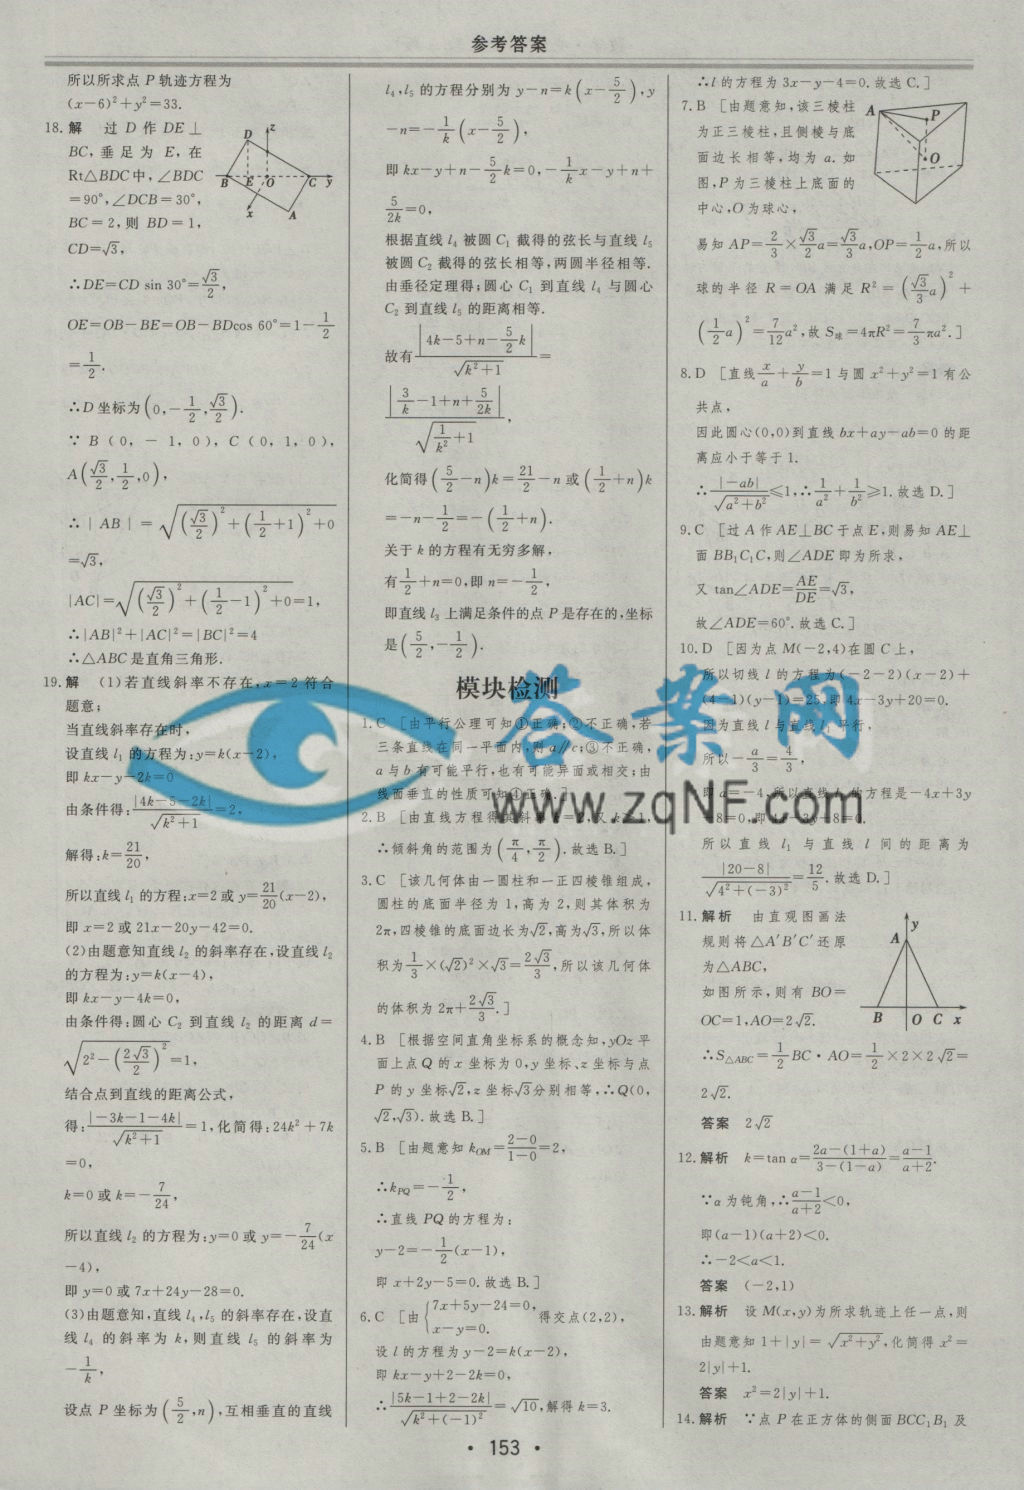 参考答案
所以所求点 P 轨迹方程为
(x-6)²+y²=33.
18.解 过 D 作 DE⊥
BC,垂足为 E,在
Rt△BDC中,∠BDC
=90°,∠DCB=30°,
BC=2,则 BD=1,
CD=√3,
∴DE=CD sin 30°=√3/2,
OE=OB-BE=OB-BDcos 60°=1-1/2
=1/2.
∴D 坐标为(0,-1/2,√3/2).
∵B(0,-1,0),C(0,1,0),
A(√3/2,1/2,0),
∴|AB|=√((√3/2)²+(1/2+1)²+0)
=√3,
|AC|=√((√3/2)²+(1/2-1)²+0)=1,
∴|AB|²+|AC|²=|BC|²=4
∴△ABC是直角三角形.
19.解 (1)若直线斜率不存在,x=2 符合
题意;
当直线斜率存在时,
设直线 l₁ 的方程为:y=k(x-2),
即 kx-y-2k=0
由条件得:|4k-5-2k|/√(k²+1)=2,
解得:k=21/20,
所以直线 l₁ 的方程:x=2 或 y=21/20(x-2),
即 x=2 或 21x-20y-42=0.
(2)由题意知直线 l₂ 的斜率存在,设直线 l₂
的方程为:y=k(x-4),
即 kx-y-4k=0,
由条件得:圆心 C₂ 到直线 l₂ 的距离 d=
√(2²-(2√3/2)²)=1,
结合点到直线的距离公式,
得:|-3k-1-4k|/√(k²+1)=1,化简得:24k²+7k
=0,
k=0 或 k=-7/24,
所以直线 l₂ 的方程为:y=0 或 y=-7/24(x
-4),
即 y=0 或 7x+24y-28=0.
(3)由题意知,直线 l₄,l₅ 的斜率存在,设直
线 l₄ 的斜率为 k,则直线 l₅ 的斜率为
-1/k,
设点 P 坐标为(5/2,n),互相垂直的直线
l₄,l₅ 的方程分别为 y-n=k(x-5/2),y
-n=-1/k(x-5/2),
即 kx-y+n-5/2k=0,-1/kx-y+n+
5/2k=0,
根据直线 l₄ 被圆 C₁ 截得的弦长与直线 l₅
被圆 C₂ 截得的弦长相等,两圆半径相等.
由垂径定理得:圆心 C₁ 到直线 l₄ 与圆心
C₂ 到直线 l₅ 的距离相等.
故有|4k-5+n-5/2k|/√(k²+1)=
|3/k-1+n+5/2k|/√(1/k²+1),
化简得(5/2-n)k=21/2-n 或(1/2+n)k
=-n-1/2=-(1/2+n).
关于 k 的方程有无穷多解,
有1/2+n=0,即 n=-1/2,
即直线 l₃ 上满足条件的点 P 是存在的,坐标
是(5/2,-1/2).
模块检测
1.C [由平行公理可知①正确;②不正确,若
三条直线在同一平面内,则 a∥c;③不正确,
a 与 b 有可能平行,也有可能异面或相交;由
线面垂直的性质可知④正确.]
2.B [由直线方程得其斜率
∴倾斜角的范围为(π/4,π/2).故选 B.]
3.C [该几何体由一圆柱和一正四棱锥组成,
圆柱的底面半径为 1,高为 2,则其体积为
2π,四棱锥的底面边长为√2,高为√3,所以体
积为1/3×(√2)²×√3=2√3/3,所以该几何体
的体积为 2π+2√3/3.]
4.B [根据空间直角坐标系的概念知,yOz 平
面上点 Q 的 x 坐标为 0,y 坐标、z 坐标与点
P 的 y 坐标√2,z 坐标√3分别相等,∴Q(0,
√2,√3).故选 B.]
5.B [由题意知 kOM=(2-0)/(1-0)=2,
∴kPQ=-1/2,
∴直线 PQ 的方程为:
y-2=-1/2(x-1),
即 x+2y-5=0.故选 B.]
6.C [由{7x+5y-24=0, x-y=0. 得交点(2,2),
设 l 的方程为 y-2=k(x-2),
即 kx-y+2-2k=0,
∴|5k-1+2-2k|/√(k²+(-1)²)=√10,解得 k=3.
∴l 的方程为 3x-y-4=0.故选 C.]
7.B [由题意知,该三棱柱
为正三棱柱,且侧棱与底
面边长相等,均为 a.如
图,P 为三棱柱上底面的
中心,O 为球心,
易知 AP=2/3×√3/2a=√3/3a,OP=1/2a,所以
球的半径 R=OA 满足 R²=(√3/3a)²+
(1/2a)²=7/12a²,故 S球=4πR²=7/3πa².]
8.D [直线x/a+y/b=1 与圆 x²+y²=1 有公
共点,
因此圆心(0,0)到直线 bx+ay-ab=0 的距
离应小于等于 1.
∴|-ab|/√(a²+b²)≤1,∴1/a²+1/b²≥1.故选 D.]
9.C [过 A 作 AE⊥BC 于点 E,则易知 AE⊥
面 BB₁C₁C,则∠ADE 即为所求,
又 tan∠ADE=AE/DE=√3,
故∠ADE=60°.故选 C.]
10.D [因为点 M(-2,4)在圆 C 上,
所以切线 l 的方程为(-2-2)(x-2)+
(4-1)(y-1)=25,即 4x-3y+20=0.
因为直线 l 与直线 l₁ 平行,
所以-a/3=4/3,
即 a=-4,所以直线 l₁ 的方程是-4x+3y
所以直线 l₁ 与直线 l 间的距离为
|20-8|/√(4²+(-3)²)=12/5.故选 D.]
11.解析 由直观图画法
规则将△A′B′C′还原
为△ABC,
如图所示,则有 BO=
OC=1,AO=2√2.
∴S△ABC=1/2BC·AO=1/2×2×2√2=
2√2.
答案 2√2
12.解析 k=tan α=(2a-(1+a))/(3-(1-a))=(a-1)/(a+2).
∵α 为钝角,∴(a-1)/(a+2)<0,
即(a-1)(a+2)<0.
∴-2<a<1.
答案 (-2,1)
13.解析 设 M(x,y)为所求轨迹上任一点,则
由题意知 1+|y|=√(x²+y²),化简得 x²=
2|y|+1.
答案 x²=2|y|+1.
14.解析 ∵点 P 在正方体的侧面 BCC₁B₁ 及
答案网
www.zqNF.com
· 153 ·